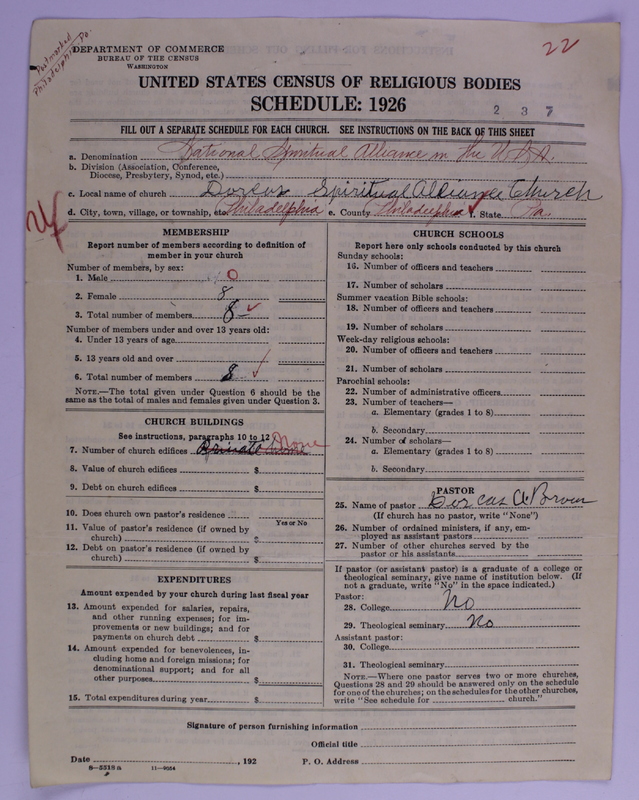 Postmarked
Philadelphia, Pa.
22
DEPARTMENT OF COMMERCE
BUREAU OF THE CENSUS
WASHINGTON
UNITED STATES CENSUS OF RELIGIOUS BODIES
SCHEDULE: 1926
2 3 7
FILL OUT A SEPARATE SCHEDULE FOR EACH CHURCH. SEE INSTRUCTIONS ON THE BACK OF THIS SHEET
a. Denomination National Spiritual Alliance in the U.S.A.
b. Division (Association, Conference, Diocese, Presbytery, Synod, etc.)
c. Local name of church Dorcas Spiritual Alliance Church
d. City, town, village, or township, etc. Philadelphia e. County Philadelphia f. State Pa.
MEMBERSHIP
Report number of members according to definition of
member in your church
Number of members, by sex:
1. Male 0
2. Female 8
3. Total number of members 8
Number of members under and over 13 years old:
4. Under 13 years of age
5. 13 years old and over
6. Total number of members 8
NOTE.—The total given under Question 6 should be the
same as the total of males and females given under Question 3.
CHURCH BUILDINGS
See instructions, paragraphs 10 to 12
7. Number of church edifices Private None
8. Value of church edifices $
9. Debt on church edifices $
10. Does church own pastor's residence
Yes or No
11. Value of pastor's residence (if owned by
church) $
12. Debt on pastor's residence (if owned by
church) $
EXPENDITURES
Amount expended by your church during last fiscal year
13. Amount expended for salaries, repairs,
and other running expenses; for im-
provements or new buildings; and for
payments on church debt $
14. Amount expended for benevolences, in-
cluding home and foreign missions; for
denominational support; and for all
other purposes $
15. Total expenditures during year $
CHURCH SCHOOLS
Report here only schools conducted by this church
Sunday schools:
16. Number of officers and teachers
17. Number of scholars
Summer vacation Bible schools:
18. Number of officers and teachers
19. Number of scholars
Week-day religious schools:
20. Number of officers and teachers
21. Number of scholars
Parochial schools:
22. Number of administrative officers
23. Number of teachers—
a. Elementary (grades 1 to 8)
b. Secondary
24. Number of scholars—
a. Elementary (grades 1 to 8)
b. Secondary
PASTOR
25. Name of pastor Dorcas A Brown
(If church has no pastor, write "None")
26. Number of ordained ministers, if any, em-
ployed as assistant pastors
27. Number of other churches served by the
pastor or his assistants
If pastor (or assistant pastor) is a graduate of a college or
theological seminary, give name of institution below. (If
not a graduate, write "No" in the space indicated.)
Pastor:
28. College No
29. Theological seminary No
Assistant pastor:
30. College
31. Theological seminary
NOTE.—Where one pastor serves two or more churches,
Questions 28 and 29 should be answered only on the schedule
for one of the churches; on the schedules for the other churches,
write "See schedule for church."
Signature of person furnishing information
Official title
Date , 192 P. O. Address
8—5518a 11—9054